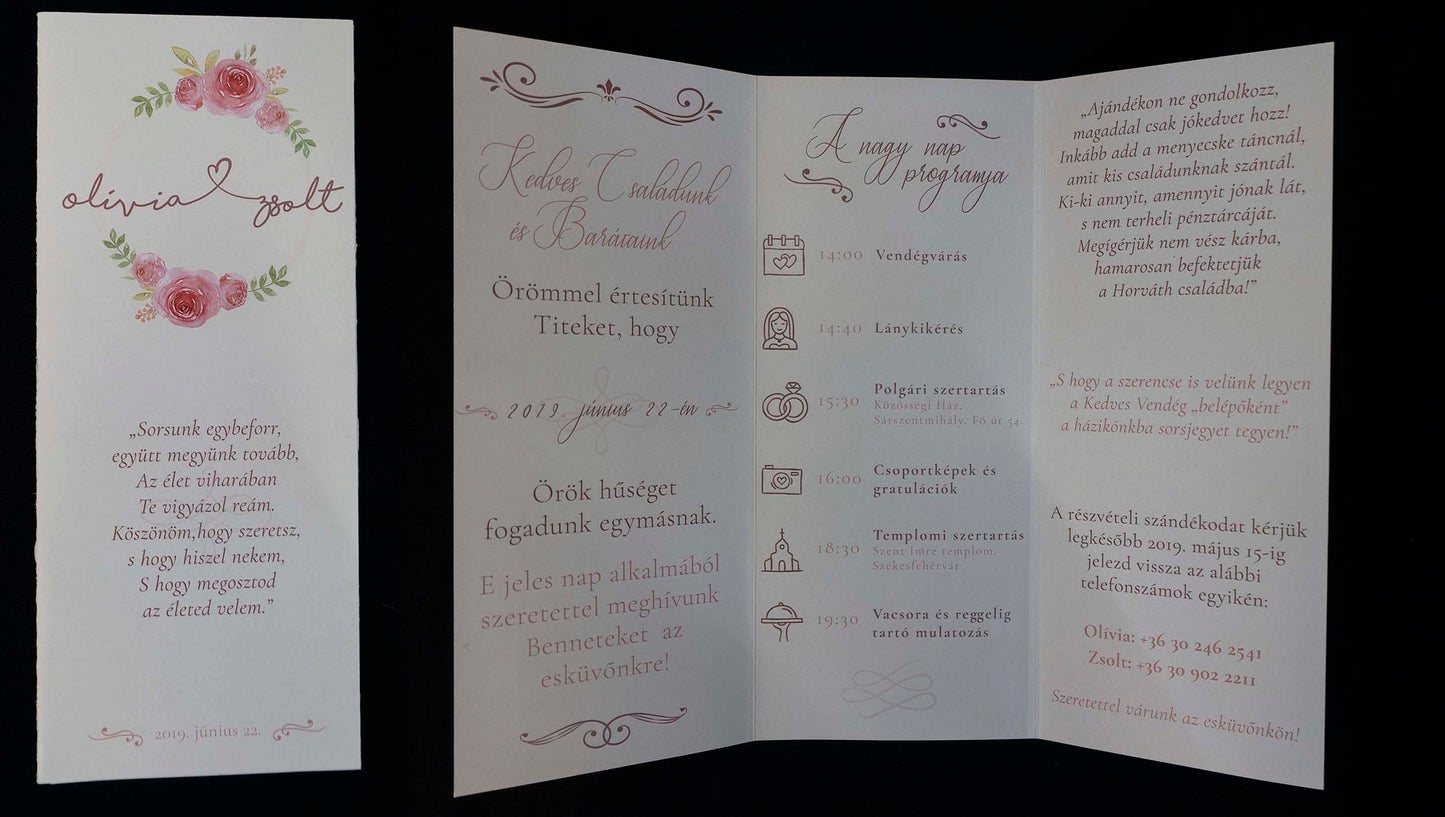 olívia zsolt
„Sorsunk egybeforr,
együtt megyünk tovább,
Az élet viharában
Te vigyázol reám.
Köszönöm,hogy szeretsz,
s hogy hiszel nekem,
S hogy megosztod
az életed velem.”
2019. június 22.
Kedves Családunk
és Barátaink
Örömmel értesítünk
Titeket, hogy
2019. június 22-én
Örök hűséget
fogadunk egymásnak.
E jeles nap alkalmából
szeretettel meghívunk
Benneteket az
esküvőnkre!
A nagy nap
programja
14:00 Vendégvárás
14:40 Lánykikérés
15:30 Polgári szertartás
Közösségi Ház,
Sárszentmihály, Fő út 54.
16:00 Csoportképek és
gratulációk
18:30 Templomi szertartás
Szent Imre templom,
Székesfehérvár
19:30 Vacsora és reggelig
tartó mulatozás
„Ajándékon ne gondolkozz,
magaddal csak jókedvet hozz!
Inkább add a menyecske táncnál,
amit kis családunknak szántál.
Ki-ki annyit, amennyit jónak lát,
s nem terheli pénztárcáját.
Megígérjük nem vész kárba,
hamarosan befektetjük
a Horváth családba!”
„S hogy a szerencse is velünk legyen
a Kedves Vendég „belépőként”
a házikónkba sorsjegyet tegyen!”
A részvételi szándékodat kérjük
legkésőbb 2019. május 15-ig
jelezd vissza az alábbi
telefonszámok egyikén:
Olívia: +36 30 246 2541
Zsolt: +36 30 902 2211
Szeretettel várunk az esküvőnkön!